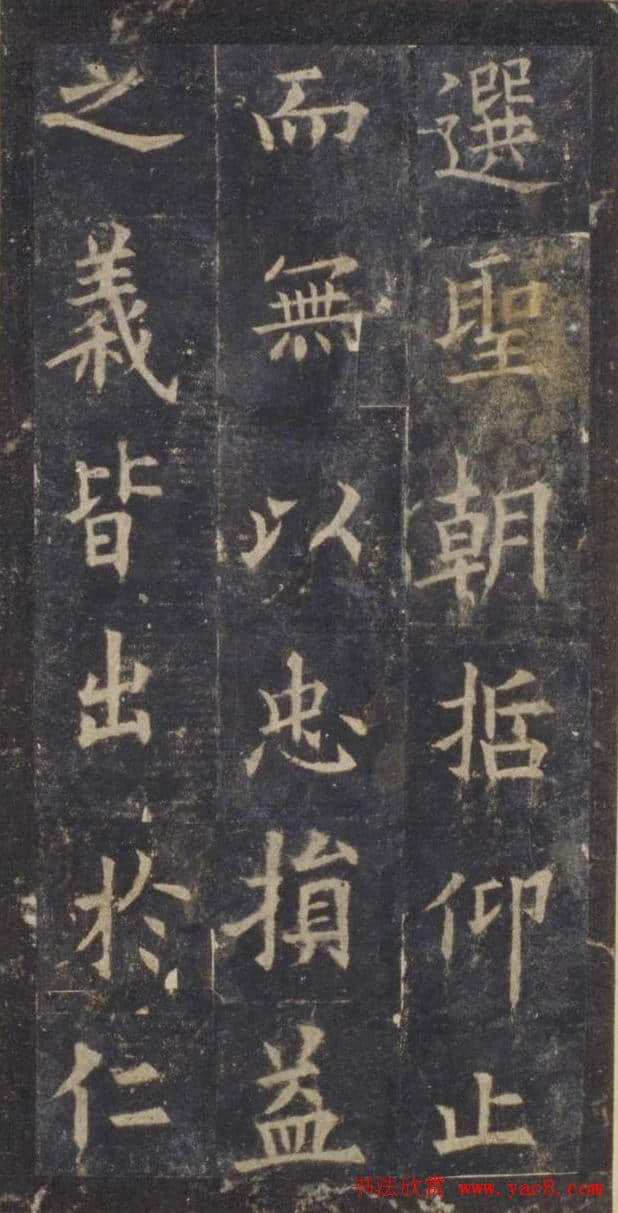 選聖朝括仰止
而無以忠損益
之義皆出於仁
书法欣赏 www.yac8.com